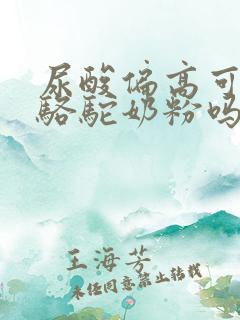 尿酸偏高可
骆驼奶粉吗
王海芳
未经同意禁止转载